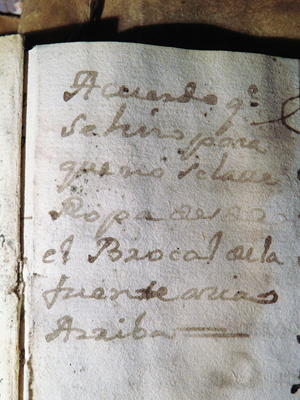 Acuerdo q.e
se hizo para
que no se lave
Ropa desde
el Brocal de la
fuente arias
Arriba